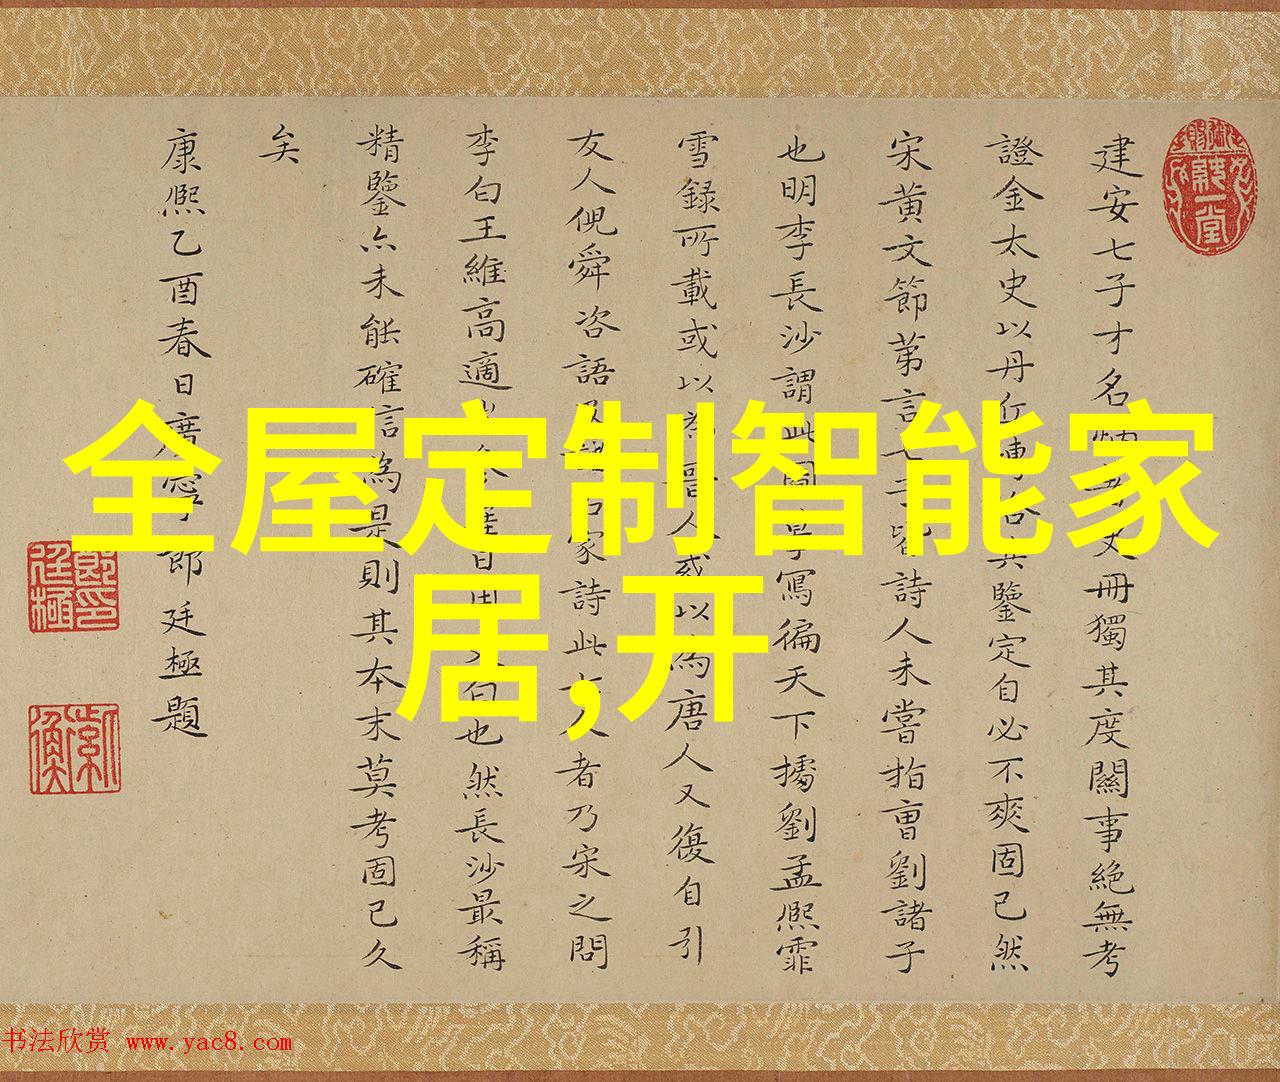 建安七子才名
冊獨其度關事絕無考
證金太史以丹丘
鑒定自必不爽固已然
宋黃文節第言七子皆詩人未嘗指曹劉諸子
也明李長沙謂此圖
寫徧天下據劉孟熙霏
雪錄所載或以為晉人或以為唐人又復自引
友人倪舜咨語
家詩此七人者乃宋之問
李白王維高適
也然長沙最稱
精鑒亦未能確言為是則其本末莫考固已久
矣
康熙乙酉春日廣寧郎廷極題
全屋定制智能家
居,开
郎廷極印
紫衡
書法欣赏 www.yac8.com